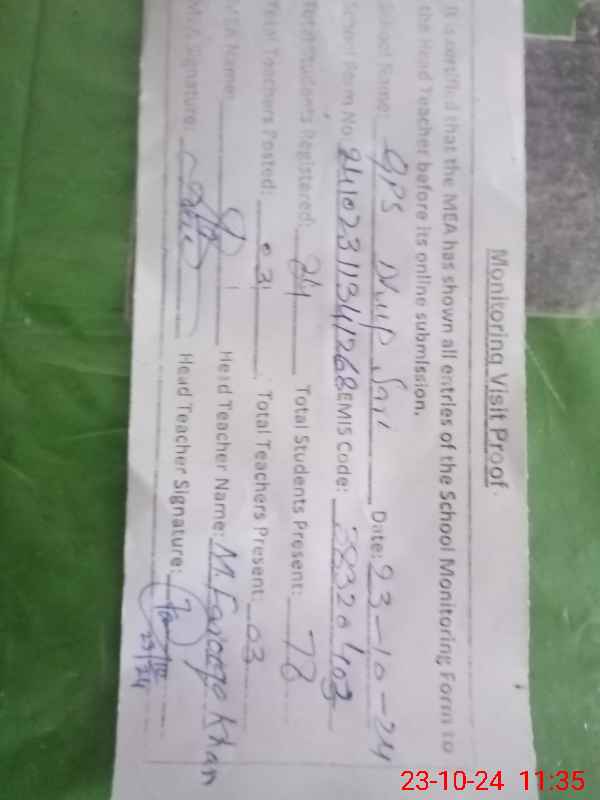 Monitoring Visit Proof
It is certified that the MEA has shown all entries of the School Monitoring Form to
the Head Teacher before its online submission.
School Name: GPS Date: 23-10-24
School Form No: 24102311341268 EMIS Code:
Total Students Registered: Total Students Present: 78
Total Teachers Posted: 03 Total Teachers Present: 03
MEA Name: Head Teacher Name: M. Farooq Khan
MEA Signature: Head Teacher Signature:
23-10-24 11:35